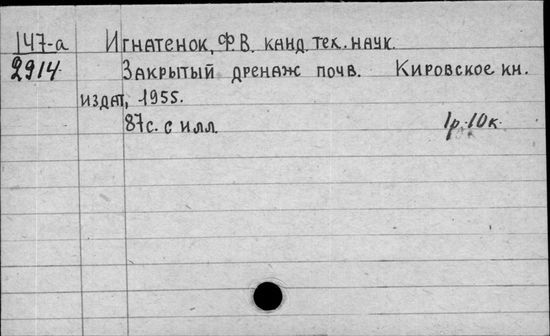 147-а Игнатенок, Ф.В. канд. тех. наук.
2914. Закрытый дренаж почв. Кировское кн.
издат, 1955.
87с. с илл. 1р.10к.